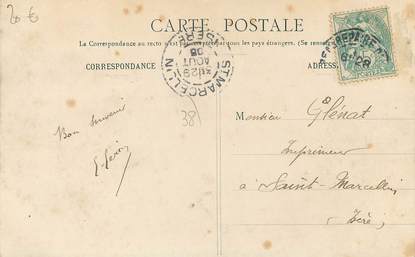 20 €
CARTE POSTALE
La Correspondance au recto n'est pas acceptée par tous les pays étrangers. (Se renseig
CORRESPONDANCE
ADRES
ST MARCELLIN
ISERE
29
AOUT
08
38
Bon Souvenir
Monsieur Glénat
Imprimeur
à Saint-Marcellin
Isère